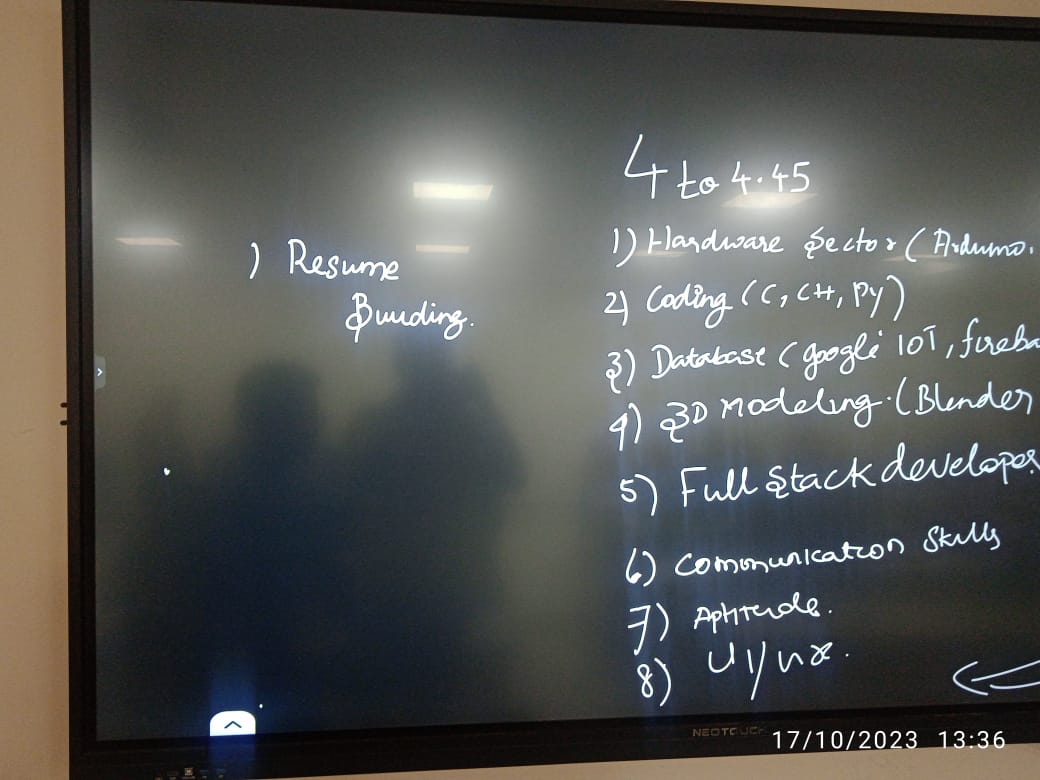 1) Resume
Building.
4 to 4.45
1) Hardware Sector (Arduino.
2) Coding (C, C++, Py)
3) Database (google IOT, fireba
4) 3D Modeling. (Blender
5) Full Stack developer
6) Communication Skills
7) Aptitude.
8) UI/ux.
NEOTOUCH
17/10/2023 13:36